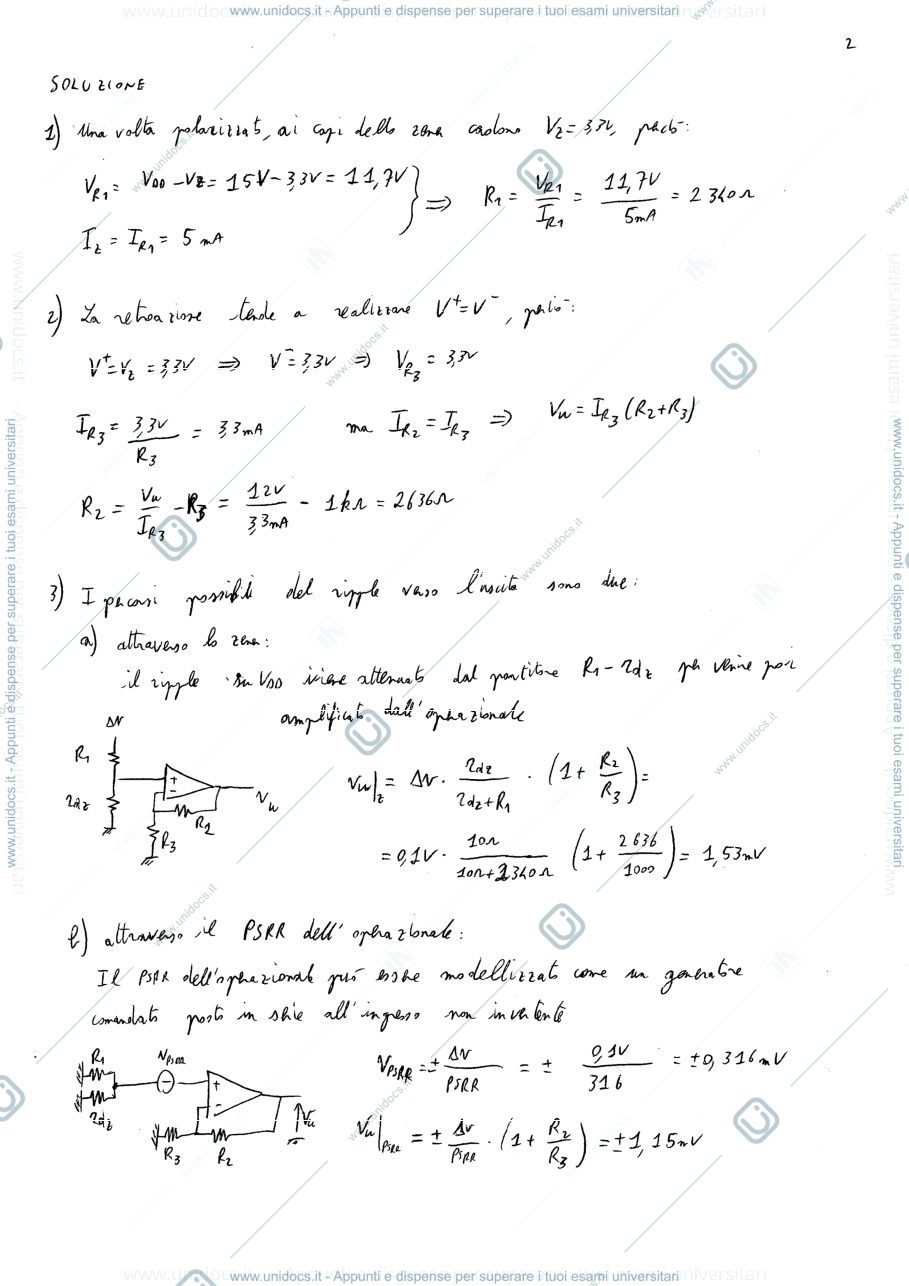 www.unidocs.it - Appunti e dispense per superare i tuoi esami universitari
2
SOLUZIONE
1) Una volta polarizzato, ai capi dello zener cadono Vz = 3,3V, perciò:
VR1 = VDD - Vz = 15V - 3,3V = 11,7V
Iz = IR1 = 5 mA
⇒ R1 = VR1 / IR1 = 11,7V / 5mA = 2340Ω
2) La retroazione tende a realizzare V+ = V-, perciò:
V+ = Vz = 3,3V ⇒ V- = 3,3V ⇒ VR3 = 3,3V
IR3 = 3,3V / R3 = 3,3mA ma IR2 = IR3 ⇒ Vu = IR3 (R2 + R3)
R2 = Vu / IR3 - R3 = 12V / 3,3mA - 1kΩ = 2636Ω
3) I percorsi possibili del ripple verso l'uscita sono due:
a) attraverso lo zener:
il ripple su VDD viene attenuato dal partitore R1 - rdz per venire poi
amplificato dall'operazionale
Δv
R1
rdz
+
-
R2
R3
Vu
Vu|z = Δv · rdz / (rdz + R1) · (1 + R2 / R3) =
= 0,1V · 10Ω / (10Ω + 2340Ω) (1 + 2636 / 1000) = 1,53mV
b) attraverso il PSRR dell'operazionale:
Il PSRR dell'operazionale può essere modellizzato come un generatore
comandato posto in serie all'ingresso non invertente
R1
rdz
vPSRR
+
-
R3
R2
Vu
VPSRR = ± Δv / PSRR = ± 0,1V / 316 = ±0,316mV
Vu|PSRR = ± Δv / PSRR · (1 + R2 / R3) = ±1,15mV
www.unidocs.it - Appunti e dispense per superare i tuoi esami universitari